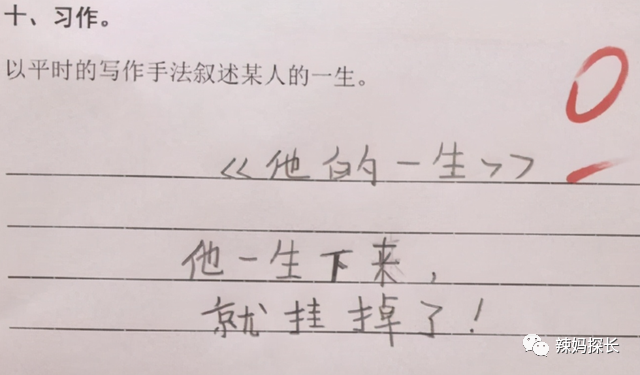 十、习作。
以平时的写作手法叙述某人的一生。
0
《他的一生》
他一生下来，
就挂掉了！
辣妈探长